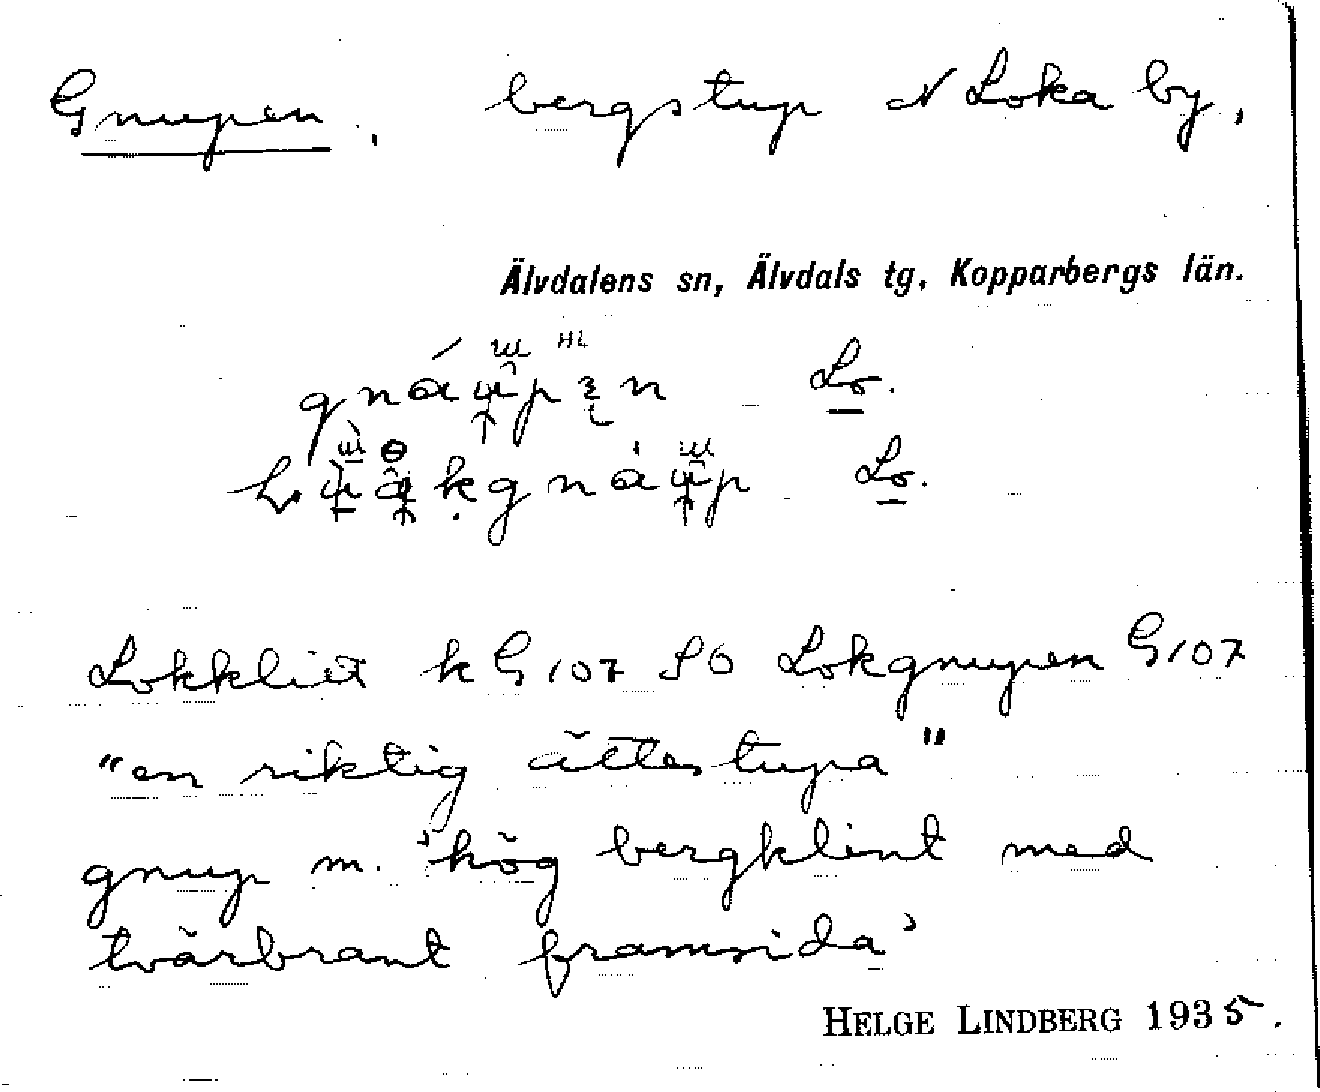 Gnupen, bergstup N Loka by,
Älvdalens sn, Älvdals tg. Kopparbergs län.
Lo.
Lo.
Lokkliet k G107 SO Lokgnupen G107
"en riktig ättestupa"
gnup m. 'hög bergklint med
tvärbrant framsida'
HELGE LINDBERG 1935.